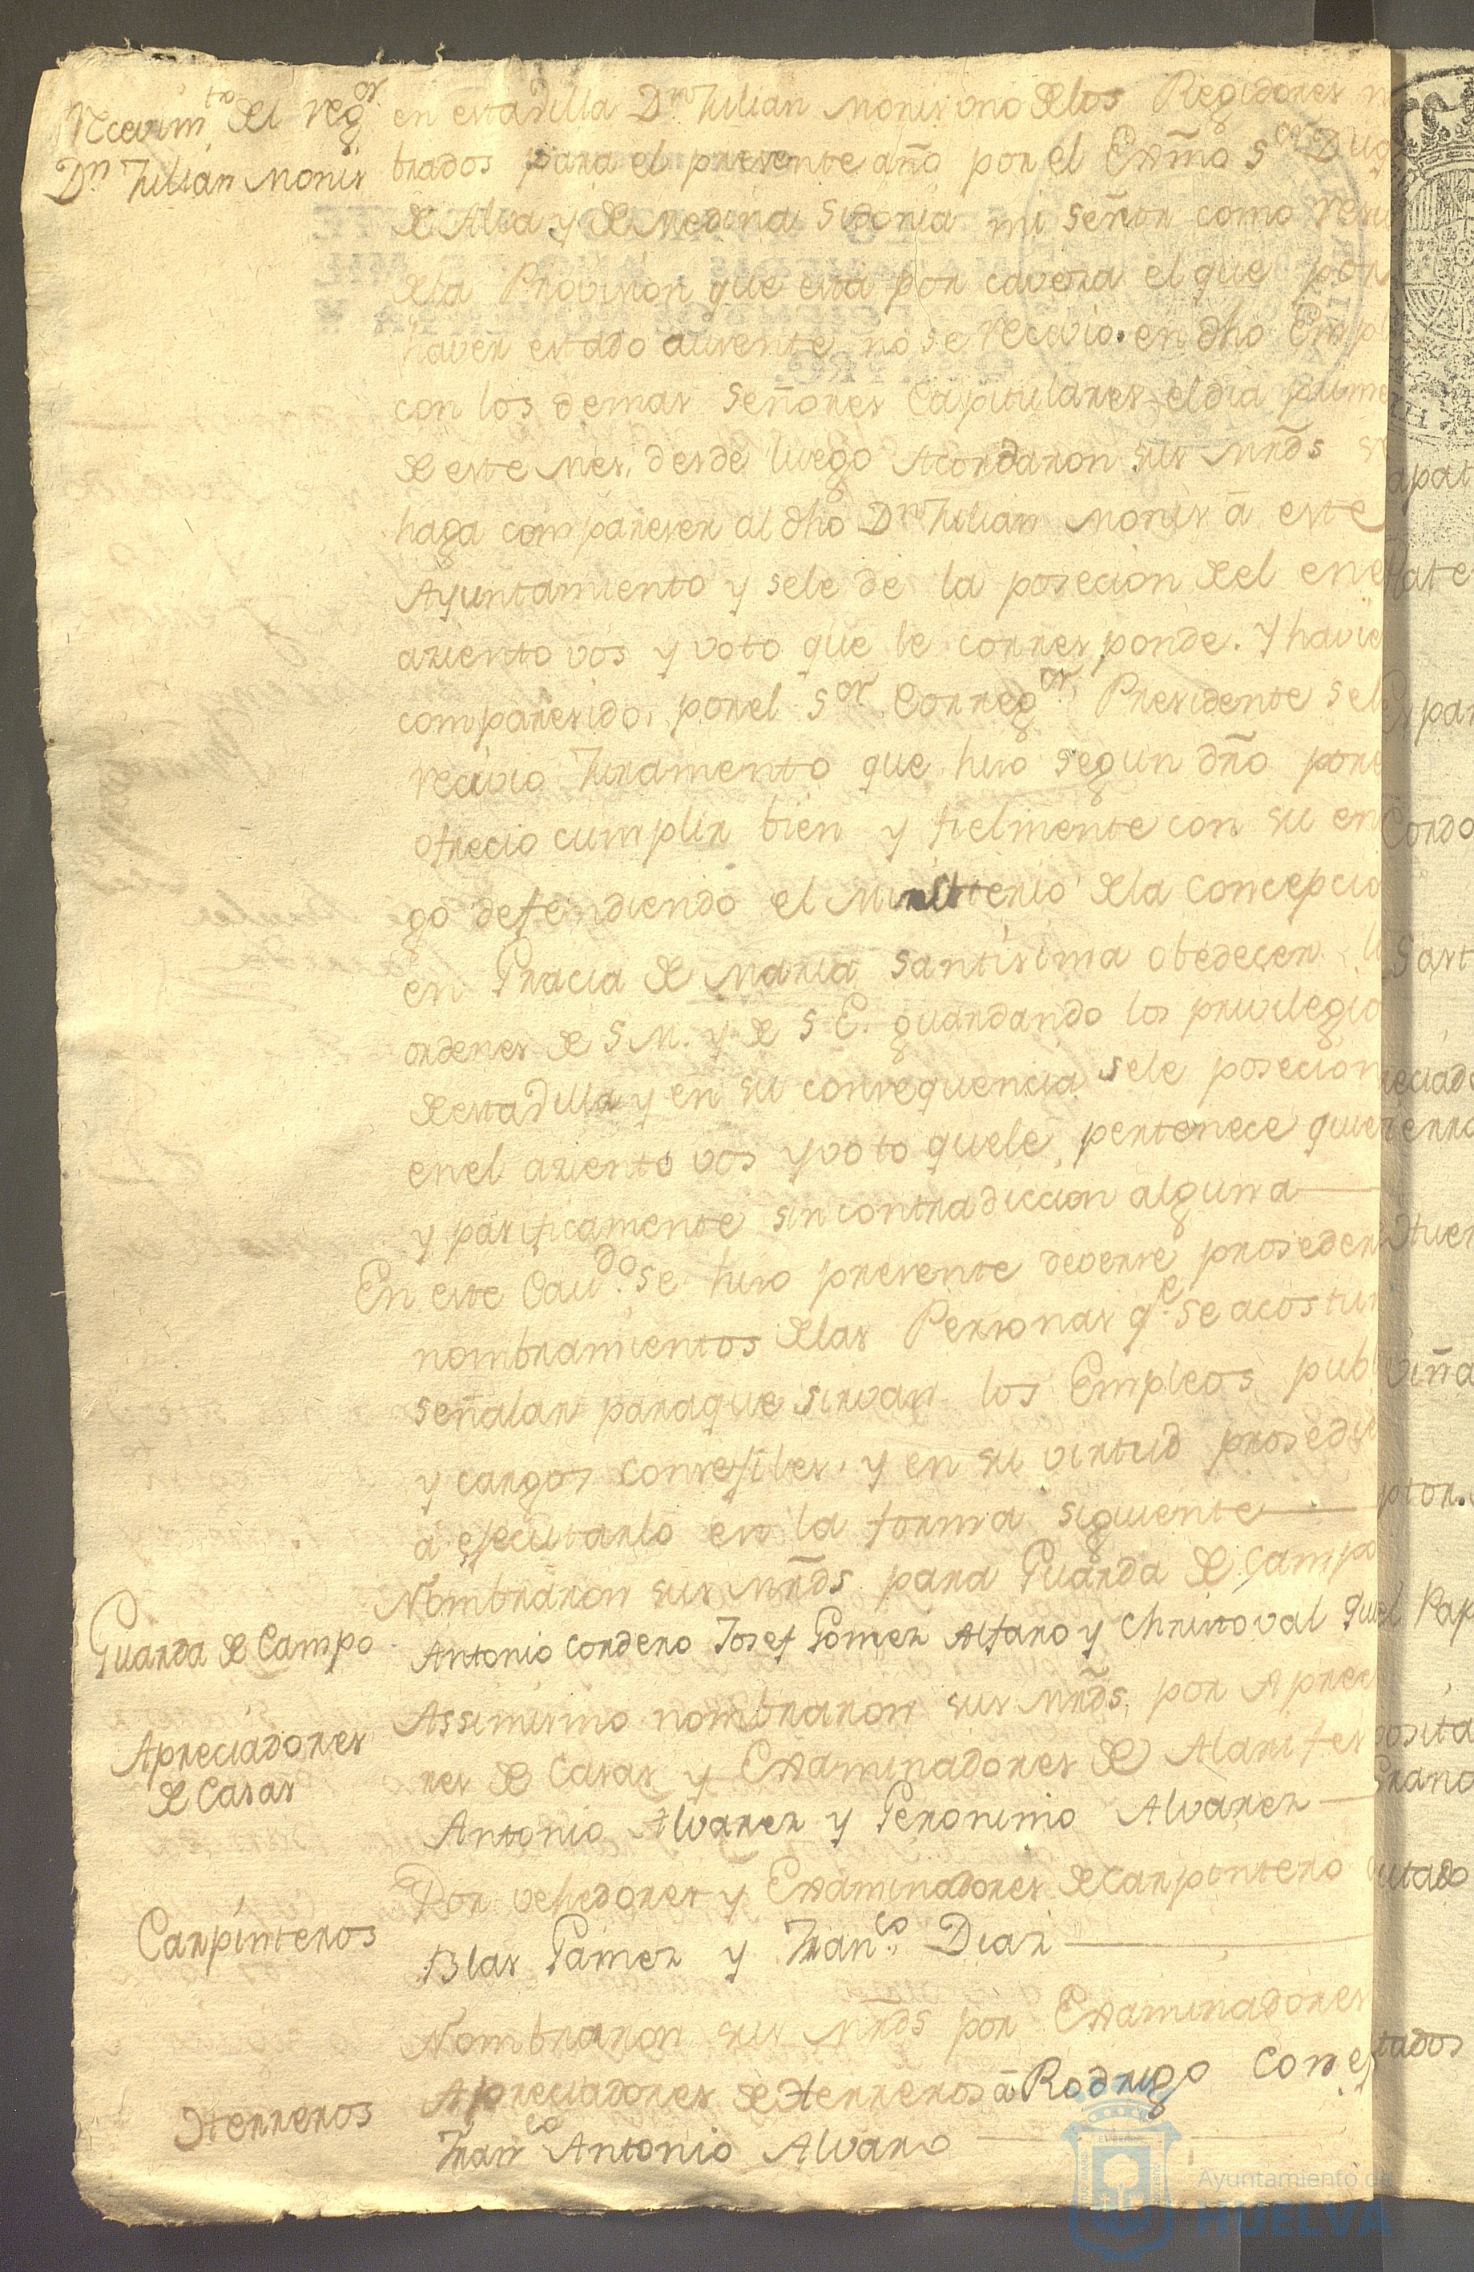 Recevim.to del reg.or
D.n Julian Monis
en esta Villa D.n Julian Monis vno de los Regidores n
brados para el presente año por el Exmo S.or Duq
de Alva y de Medina Sidonia mi señor como
de la Provision que esta por cavesa el que por
haver estado ausente no se recevio en dho Empl
con los demas señores Capitulares el dia prime
de este mes, desde luego Acordaron sus mrds se
haga compareser al dho D.n Julian Monis á este
Ayuntamiento y sele de la posecion del en el
asiento vos y voto que le corresponde. Y havie
comparesido, por el S.or Correg.or Presidente se l
recivio Juramento que hiso segun dro por
ofrecio cumplir bien y fielmente con su en
go defendiendo el Ministerio de la Concepcio
en Gracia de Maria Santisima obedecer l
ordenes de S M. y de S E. guardando los privilegio
de esta Villa y en su consequencia sele posecion
en el asiento vos y voto que le pertenece quie
y pasificamente sin contradiccion alguna
En este Cav.do se hiso presente deverse proseder
nombramientos de las Personas q.e se acostu
señalar para que sirvan los Empleos publ
y cargos consejiles. y en su virtud prosedi
á ejecutarlo en la forma siguiente
Guarda de Campo
Nombraron sus mrds para Guarda de Campo
Antonio Cordero Josef Gomez Alfaro y Christoval
Apreciadores
de Casas
Assimismo nombraron sus mrds por Aprec
res de Casas y Examinadores de Alarifes
Antonio Alvarez y Geronimo Alvarez
Carpinteros
Por vehedores y Examinadores de Carpintero
Blas Gamez y Fran.co Diaz
Herreros
Nombraron sus mrds por Examinadores
Apreciadores de Herreros á Rodrigo
Fran.co Antonio Alvaro
apat
Cordo
Sast
viña
Ayuntamiento de
HUELVA